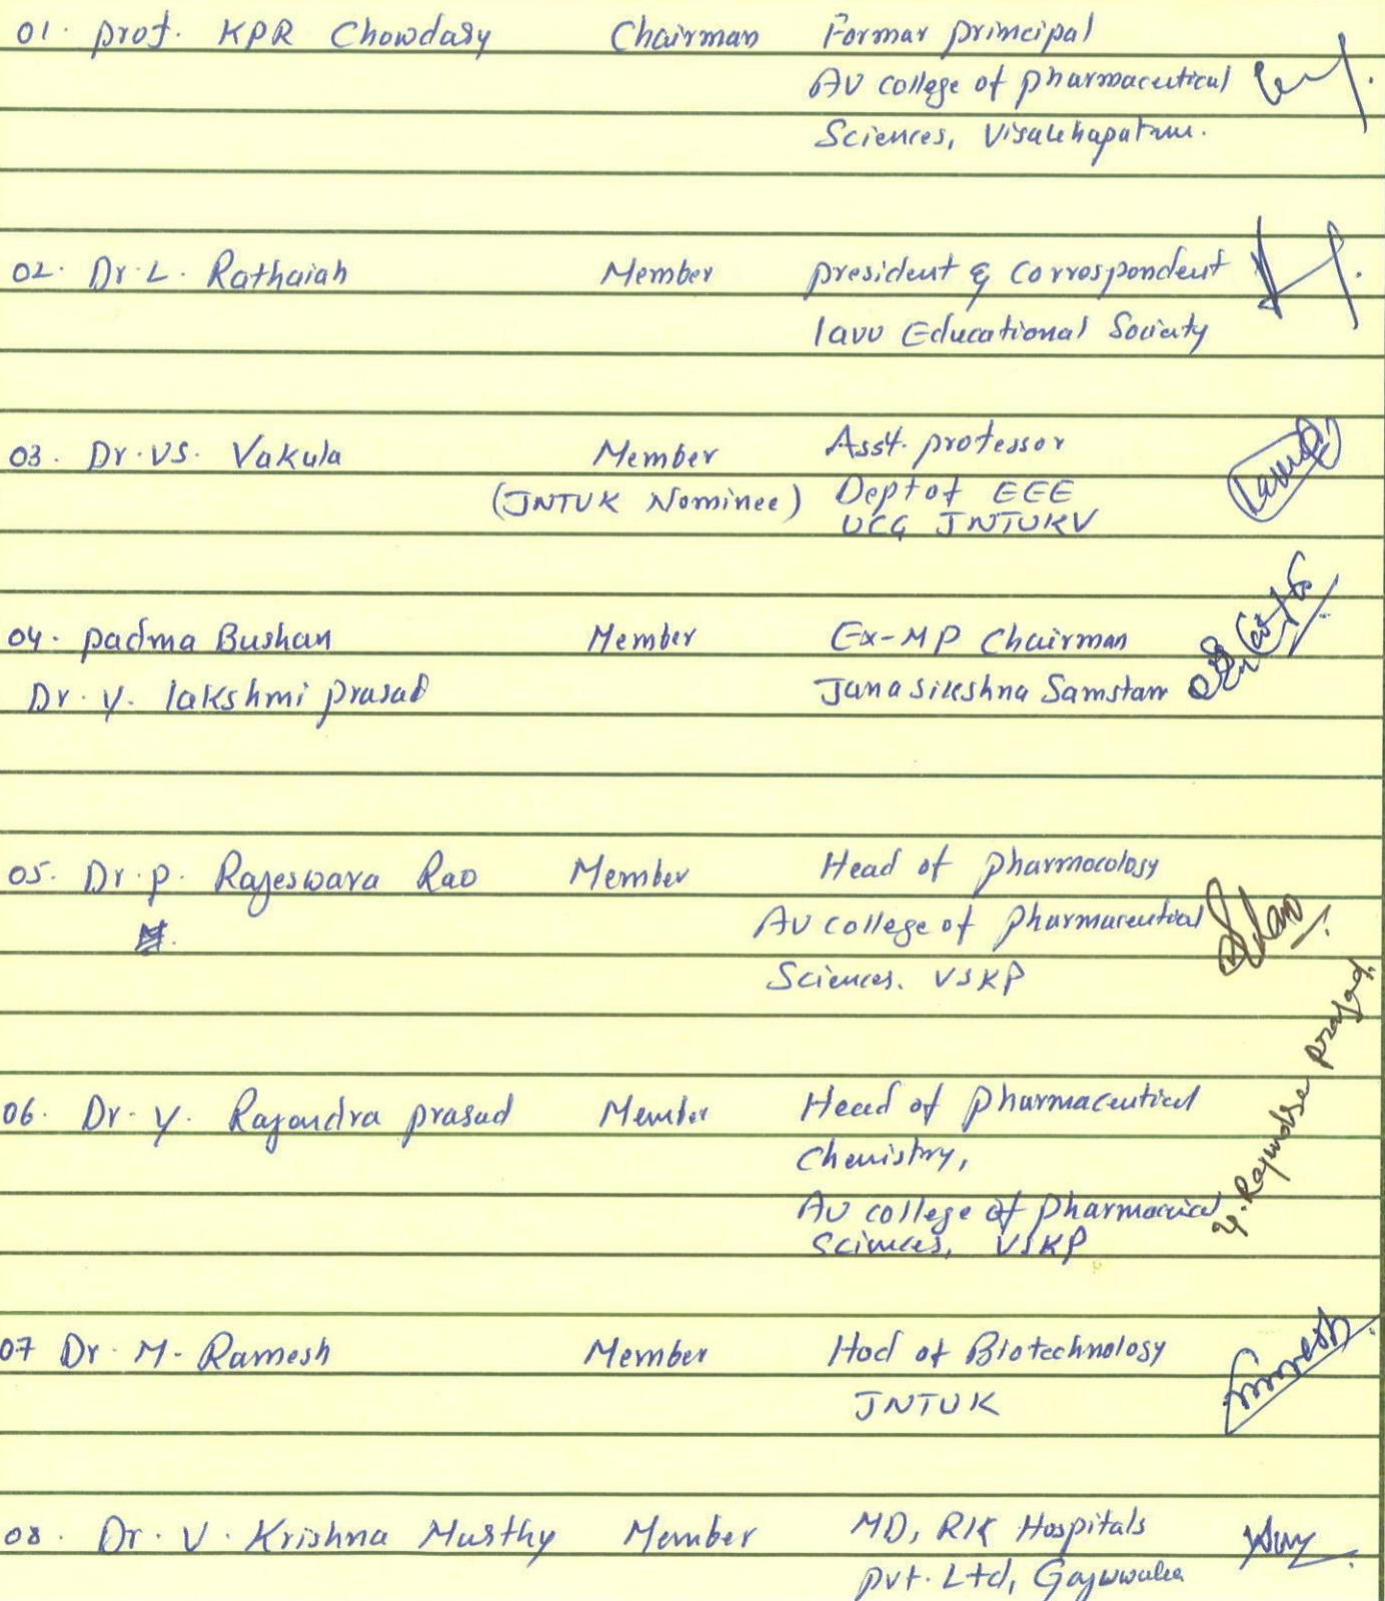 01. Prof. KPR Chowdary Chairman Formar Principal
AU college of pharmaceutical
Sciences, Visakhapatnam.
02. Dr. L. Rathaiah Member president & Correspondent
lavu Educational Society
03. Dr. VS. Vakula Member Asst. professor
(JNTUK Nominee) Dept of EEE
UCE JNTUKV
04. padma Bushan Member Ex-MP Chairman
Dr. Y. lakshmi prasad Jana sikshna Samstan
05. Dr. P. Rajeswara Rao Member Head of pharmocology
AU college of pharmaceutical
Sciences. VSKP
06. Dr. Y. Rajendra prasad Member Head of pharmaceutical
Chemistry,
AU college of pharmacical
Sciences, VSKP
Y. Rajendra prasad
07 Dr. M. Ramesh Member Hod of Biotechnology
JNTUK
08. Dr. V. Krishna Murthy Member MD, RK Hospitals
pvt. Ltd, Gajuwaka